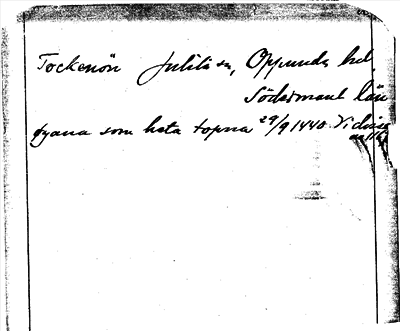 Tockenön Julita sn, Oppunda hd
Södermanl län
øyana som heta topna 29/9 1440 Vidisse